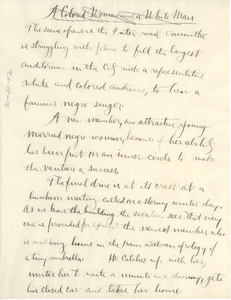 A Colored Woman and a White Man
The scene opens as the Inter racial Committee
is struggling with plans to fill the largest
auditorium in the City with a representative
white and colored audience, to hear a
famous negro singer.
A new member, an attractive young
married negro woman, because of her ability
has been put on an inner circle to make
the venture a success.
The final drive is at its crest at a
luncheon meeting called on a stormy winter day.
As we leave the building the sees that every
one is provided for the newest member who
is walking home in the rain under an apology of
a tiny umbrella. He catches up with her,
invites her to wait a minute in a doorway, gets
his closed car and takes her home.